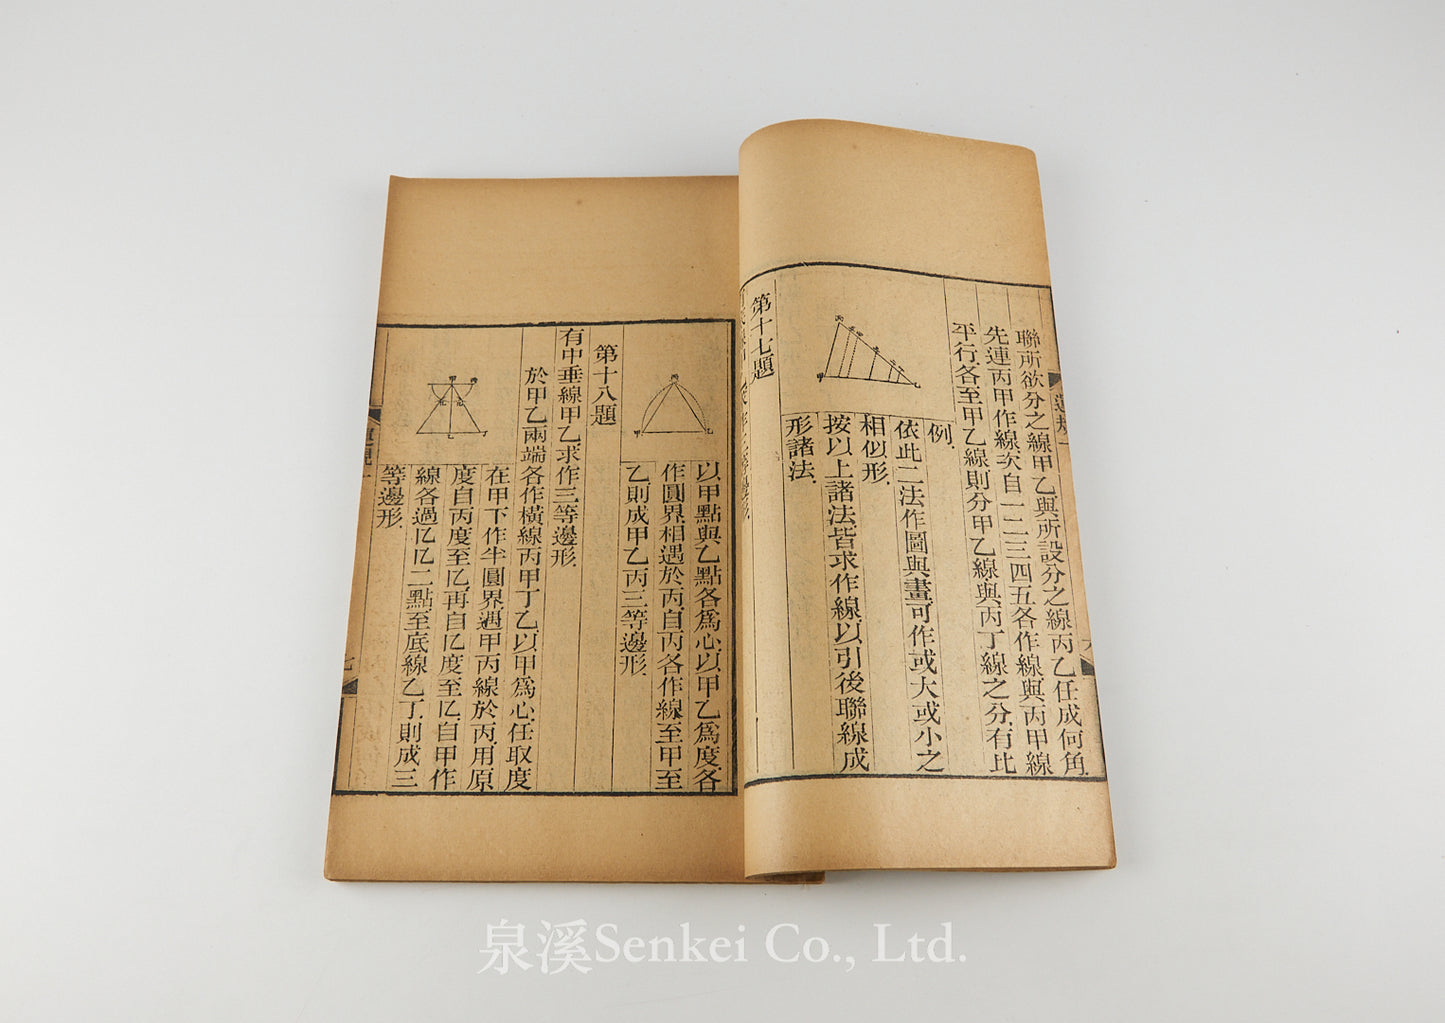 聯所欲分之線甲乙與所設分之線丙乙任成何角.
先連丙甲作線次自一二三四五各作線與丙甲線
平行.各至甲乙線則分甲乙線與丙丁線之分.有比
例.
依此二法作圖與畫可作或大或小之
相似形.
按以上諸法皆求作線以引後聯線成
形諸法.
第十七題
以甲點與乙點各爲心.以甲乙爲度.各
作圓界相遇於丙.自丙各作線至甲至
乙則成甲乙丙三等邊形.
第十八題
有中垂線甲乙求作三等邊形.
於甲乙兩端各作橫線丙甲丁乙.以甲爲心.任取度
在甲下作半圓界遇甲丙線於丙.用原
度自丙度至𢀳.再自𢀳度至𢀳.自甲作
線各過𢀳𢀳二點至底線乙丁.則成三
等邊形.
七
泉溪Senkei Co., Ltd.